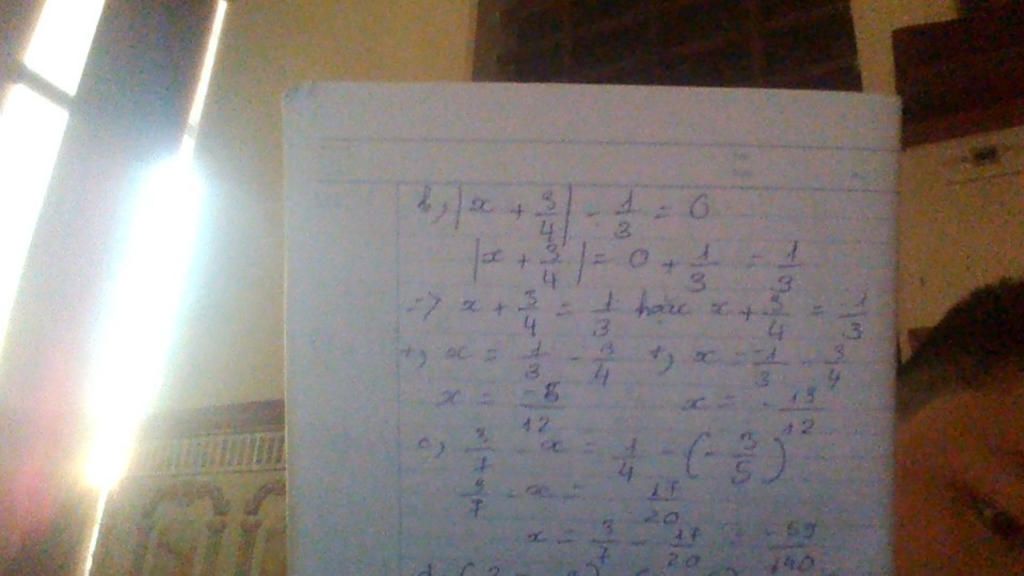 b, |x + 3/4| - 1/3 = 0
|x + 3/4| = 0 + 1/3 = 1/3
=> x + 3/4 = 1/3 hoặc x + 3/4 = -1/3
+, x = 1/3 - 3/4 +, x = -1/3 - 3/4
x = -5/12 x = -13/12
c, 3/7 - x = 1/4 - (-3/5)
3/7 - x = 17/20
x = 3/7 - 17/20 = -59/140